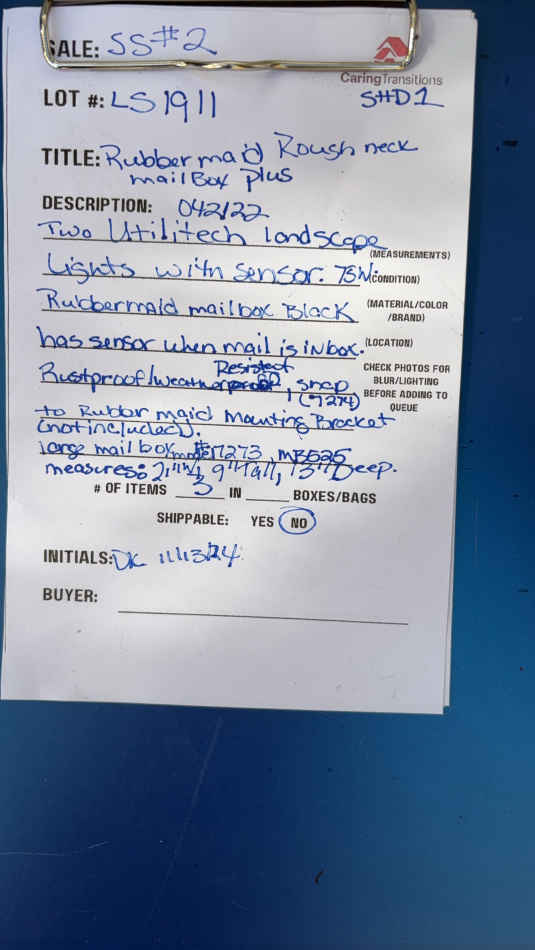 SALE: SS#2
CaringTransitions
LOT #: LS1911 SHD1
TITLE: Rubbermaid Roughneck
mailBox plus
DESCRIPTION: 042122
Two Utilitech landscape
(MEASUREMENTS)
Lights with sensor. 75W.
(CONDITION)
Rubbermaid mailbox Black
(MATERIAL/COLOR
/BRAND)
has sensor when mail is in box.
(LOCATION)
Resistant
Rustproof/weather, snap
CHECK PHOTOS FOR
BLUR/LIGHTING
BEFORE ADDING TO
QUEUE
to Rubber maid Mounting Bracket
(not included).
large mail box #17273, MB525
measures: 21"W, 9"Tall, 13"Deep.
# OF ITEMS 3 IN BOXES/BAGS
SHIPPABLE: YES NO
INITIALS: DK 11/13/24
BUYER: